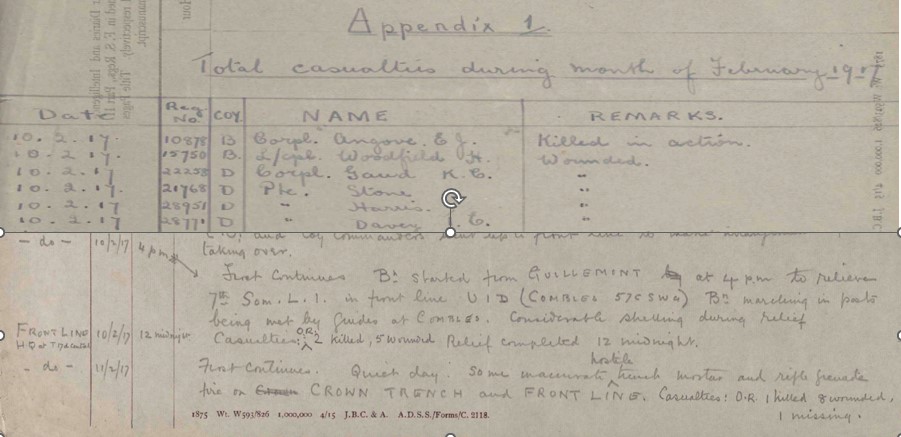 Appendix 1.
Total casualties during month of February 1917
Date Reg No. COY. NAME REMARKS.
10.2.17. 10878 B Corpl. Angove. E J. Killed in action.
10.2.17. 15750 B. L/cpl. Woodfield H. Wounded.
10.2.17 22258 D Corpl. Gaud K.C. "
10.2.17. 21768 D Pte. Stone "
10.2.17 28951 D " Harris. "
10.2.17 28771 D " Davey C. "
and Coy Commanders front line to make
- do - 10/2/17 4 pm taking over.
Frost Continues Bn started from GUILLEMINT at 4 p.m to relieve
7th Som. L.I. in front line U1D (COMBLES 57c SW4) Bn marching in parts
being met by guides at COMBLES. Considerable shelling during relief
FRONT LINE 10/2/17 12 midnight Casualties: O.R. 2 killed, 5 wounded Relief completed 12 midnight.
H.Q at
- do - 11/2/17 Frost Continues. Quiet day. Some inaccurate hostile trench mortar and rifle grenade
fire on CROWN TRENCH and FRONT LINE. Casualties: O.R. 1 killed 8 wounded,
1 missing.
1875 Wt. W593/826 1,000,000 4/15 J.B.C. & A. A.D.S.S./Forms/C. 2118.